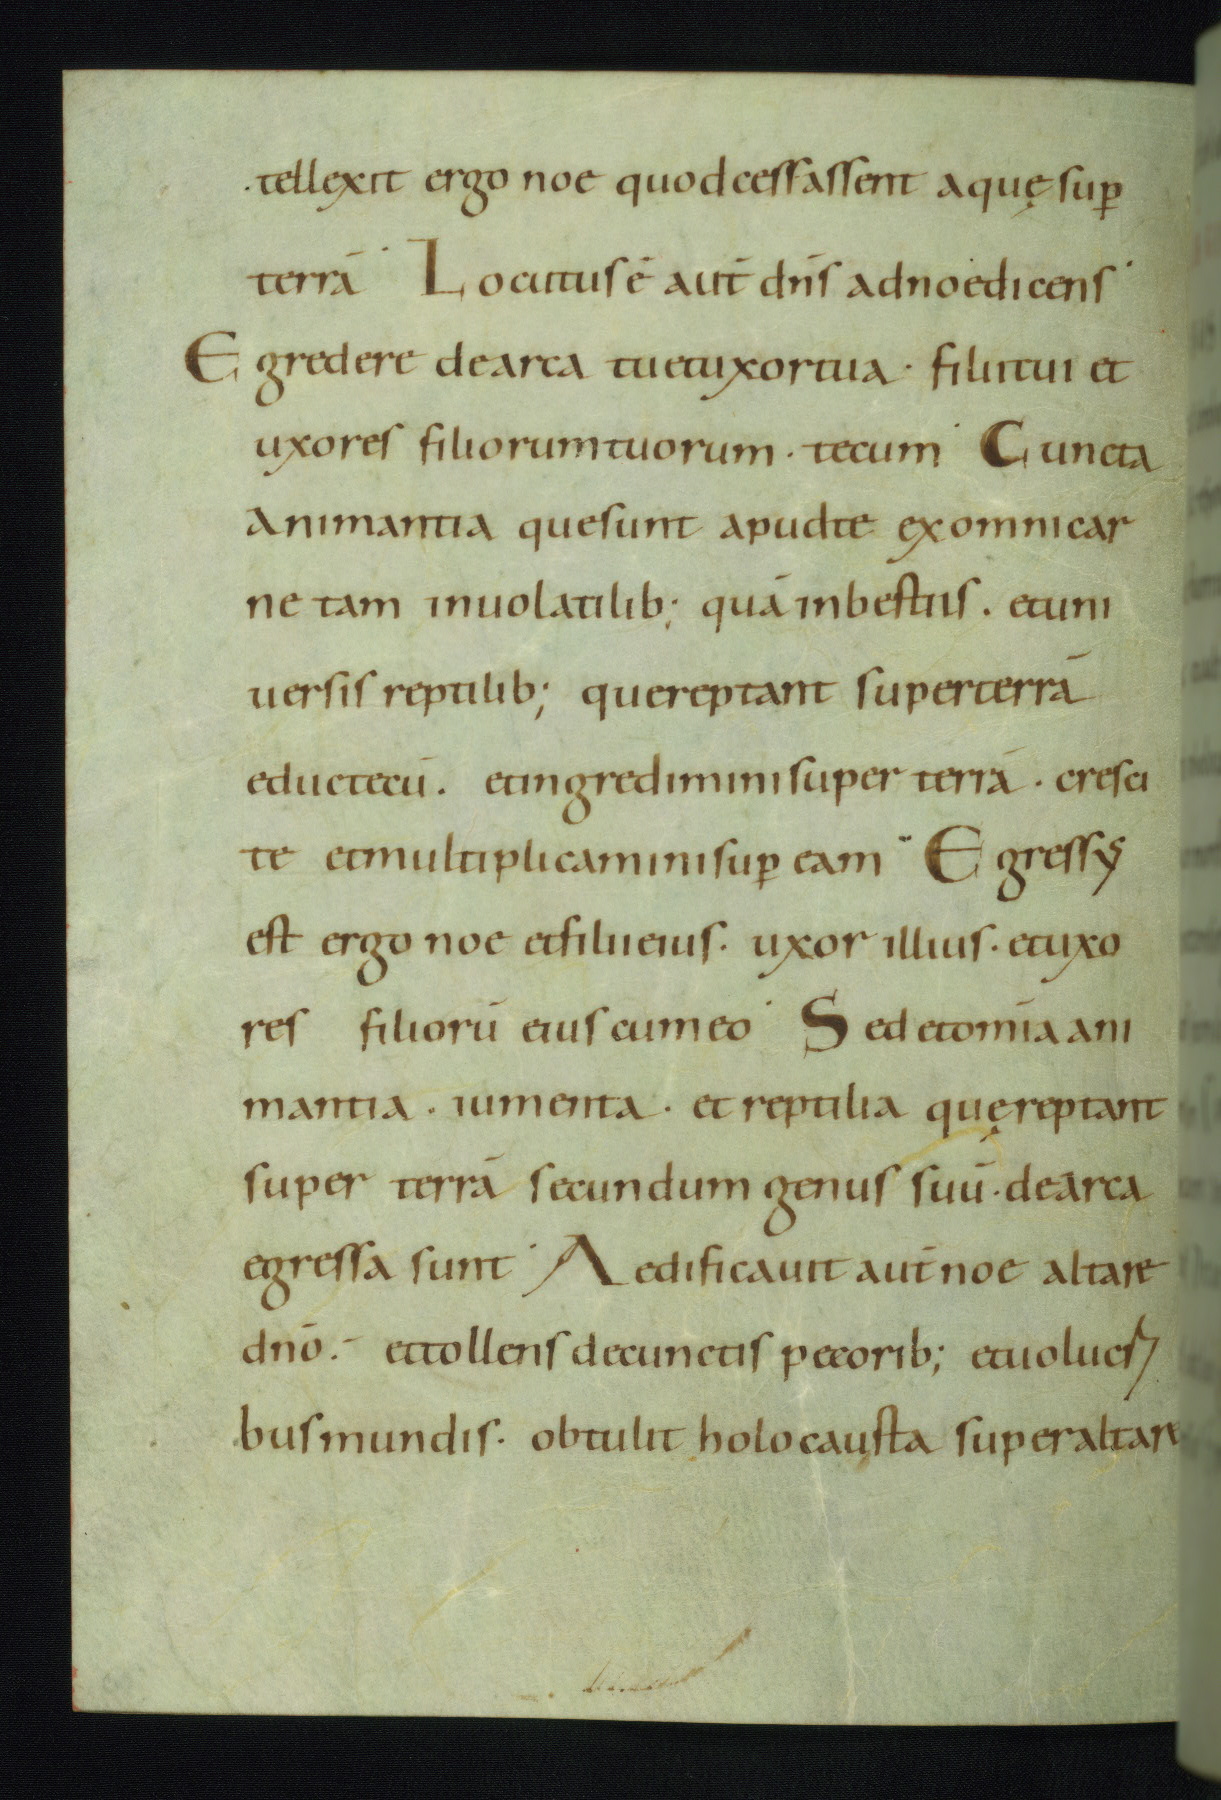 ·tellexit ergo noe quodcessassent aquę sup̄
terrā˙ Locutus ē aut̄ dn̄s adnoedicens˙
Egredere dearca tuetuxortua · filiitui et
uxores filiorumtuorum · tecum˙ Cuncta
animantia quesunt apudte exomnicar
ne tam inuolatilib; quā inbestiis . etuni
uersis reptilib; quereptant superterrā
eductecū . etingrediminisuper terrā · cresci
te etmultiplicaminisup̄ eam˙ Egressus
est ergo noe etfiliieius · uxor illius · etuxo
res filiorū eius cumeo˙ Sed etom̄ia ani
mantia · iumenta · et reptilia quęreptant
super terrā secundum genus suū · dearca
egressa sunt˙ Aedificauit aut̄ noe altare
dn̄o · ettollens decunctis pecorib; etuolucri
busmundis · obtulit holocausta superaltare